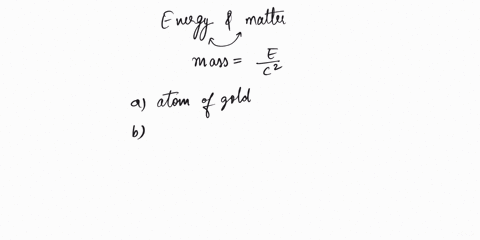 Energy & matter
mass = E/c²
a) atom of gold
b)